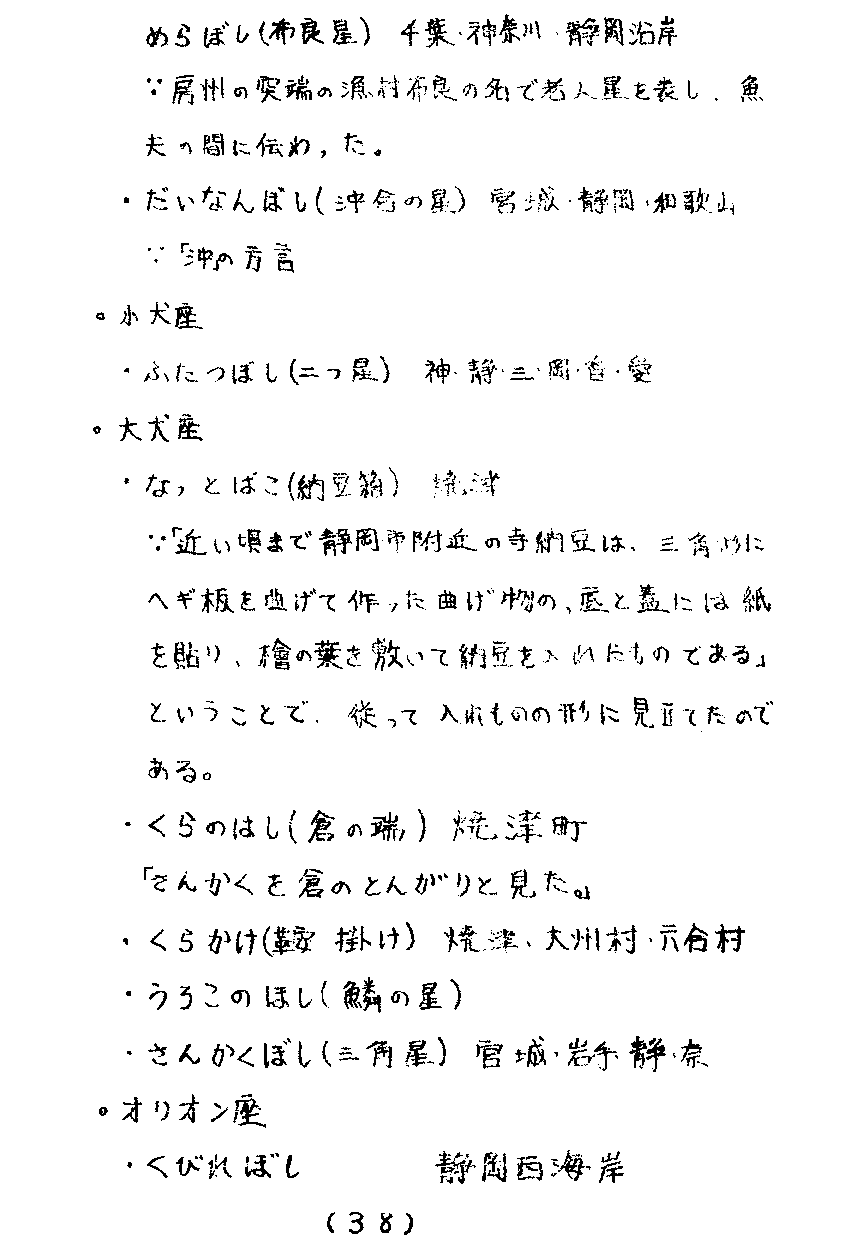 めらぼし(布良星) 千葉・神奈川・静岡沿岸
∵房州の突端の漁村布良の名で老人星を表し、魚
夫の間に伝わった。
・だいなんぼし(沖合の星) 宮城・静岡・和歌山
∵「沖」の方言
。小犬座
・ふたつぼし(二つ星) 神・静・三・岡・香・愛
。大犬座
・なっとばこ(納豆箱) 焼津
∵「近い頃まで静岡市附近の寺納豆は、三角形に
ヘギ板を曲げて作った曲げ物の、底と蓋には紙
を貼り、檜の葉を敷いて納豆を入れたものである」
ということで、従って入れものの形に見立てたので
ある。
・くらのはし(倉の端) 焼津町
「さんかくを倉のとんがりと見た。」
・くらかけ(鞍掛け) 焼津、大州村・六合村
・うろこのほし(鱗の星)
・さんかくぼし(三角星) 宮城・岩手・静・奈
。オリオン座
・くびれぼし 静岡西海岸
(38)